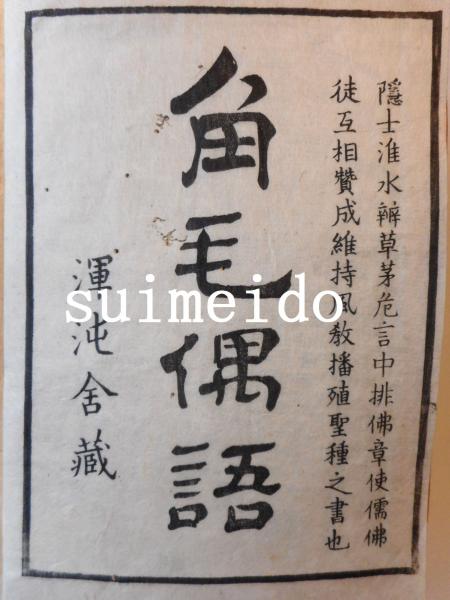 隱士淮水辨草茅危言中排佛章使儒佛
徒互相贊成維持風教播殖聖種之書也
角毛偶語
渾沌舍藏
suimeido